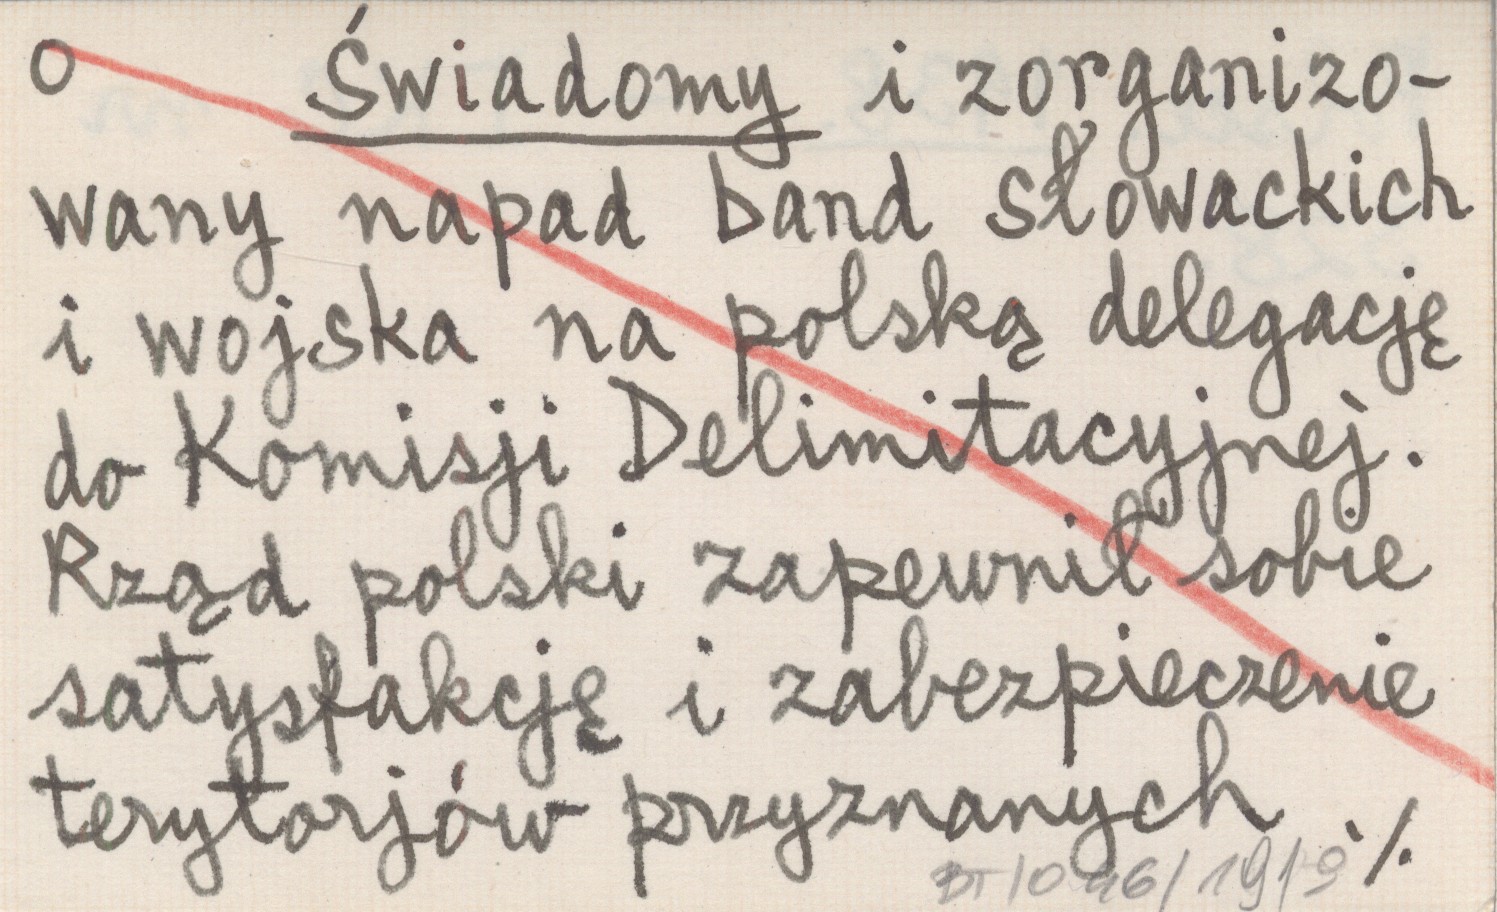 o Świadomy i zorganizo-
wany napad band słowackich
i wojska na polską delegację
do Komisji Delimitacyjnej.
Rząd polski zapewnił sobie
satysfakcję i zabezpieczenie
terytorjów przyznanych ./.